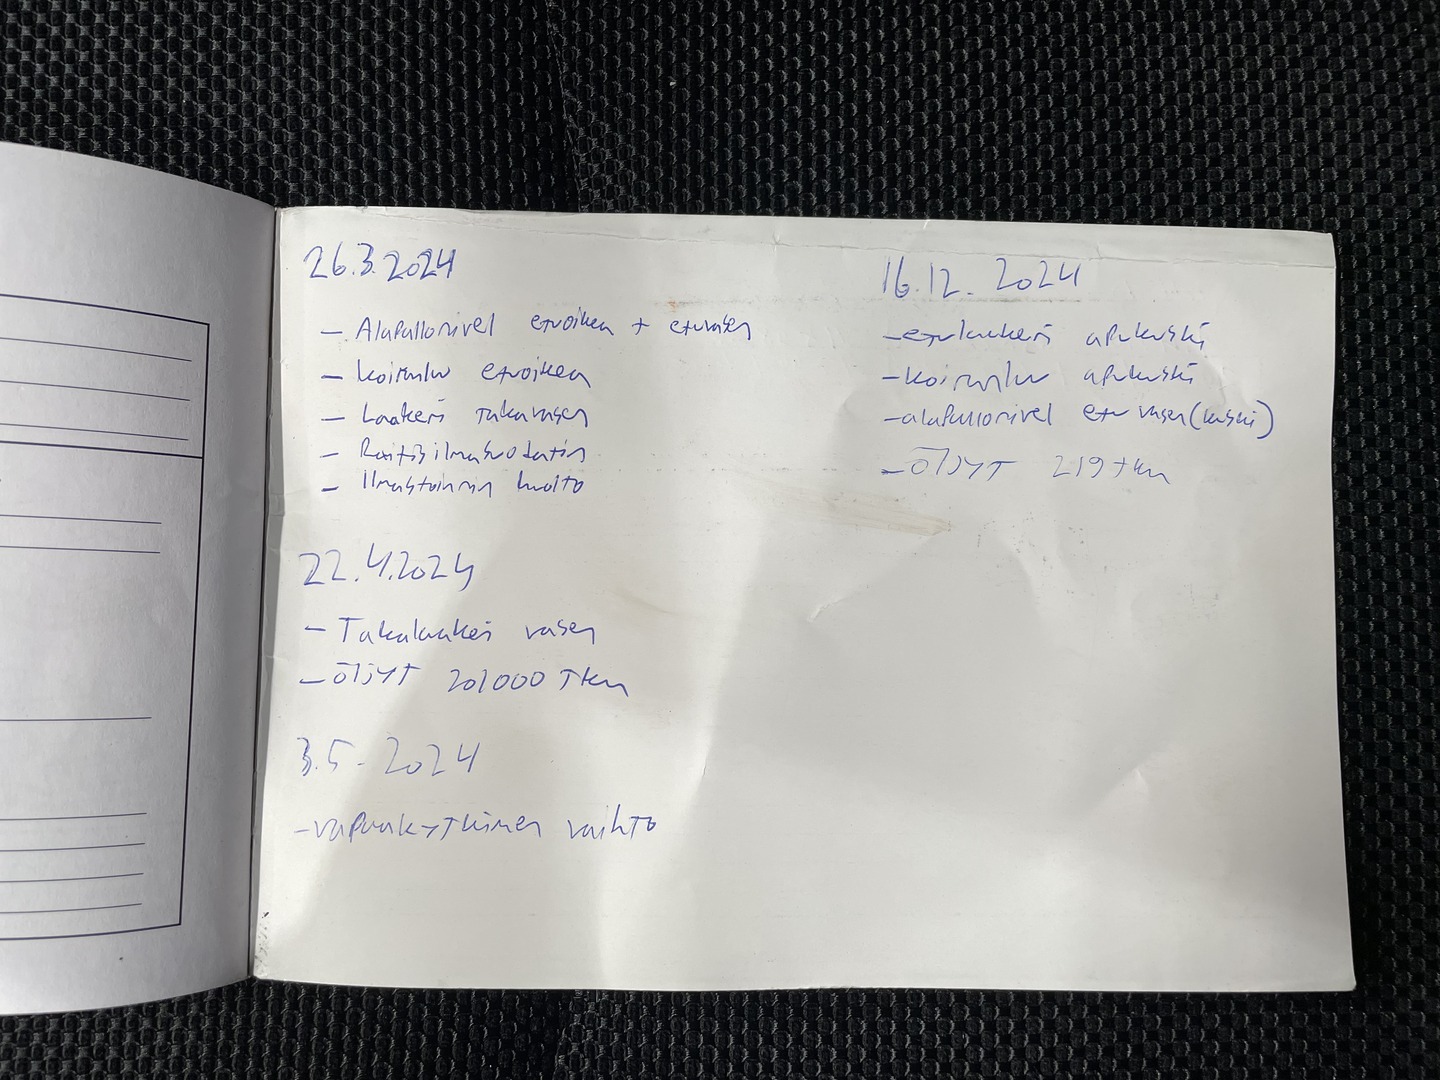 26.3.2024
- Alapallonivel etuoikea + etuvasen
- koiranluu etuoikea
- Laakeri takavasen
- Raitisilmasuodatin
- Ilmastoinnin huolto
22.4.2024
- Takalaakeri vasen
- öljyt 201000 Tkm
3.5.2024
- vapaakytkimen vaihto
16.12.2024
- etulaakeri apukuski
- koiranluu apukuski
- alapallonivel etuvasen (kuski)
- öljyt 219 tkm